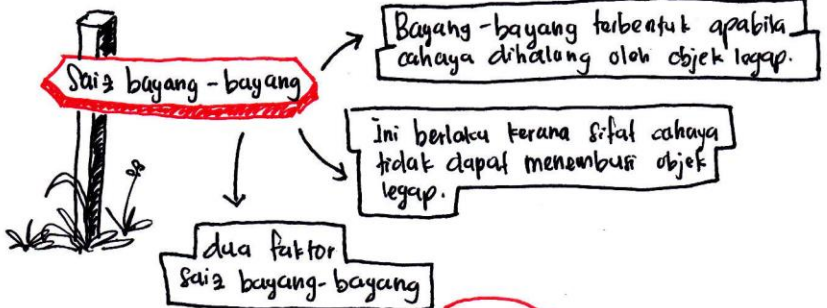 Saiz bayang-bayang
Bayang-bayang terbentuk apabila
cahaya dihalang oleh objek legap.
Ini berlaku kerana sifat cahaya
tidak dapat menembusi objek
legap.
dua faktor
saiz bayang-bayang